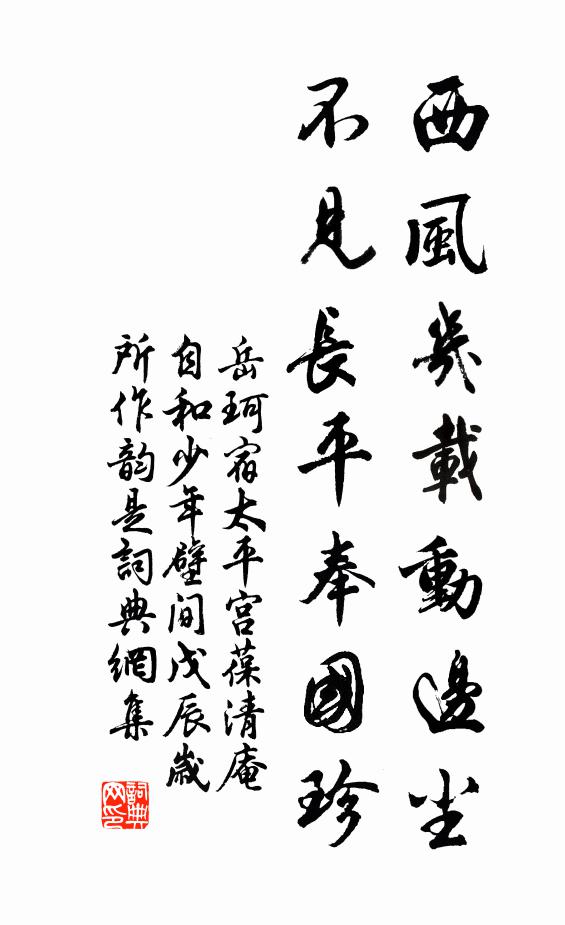 西風幾載動邊尘
不見長平奉國珍
岳珂宿太平宫葆清庵
自和少年壁间戊辰歲
所作韵是詞典網集
詞典
网印